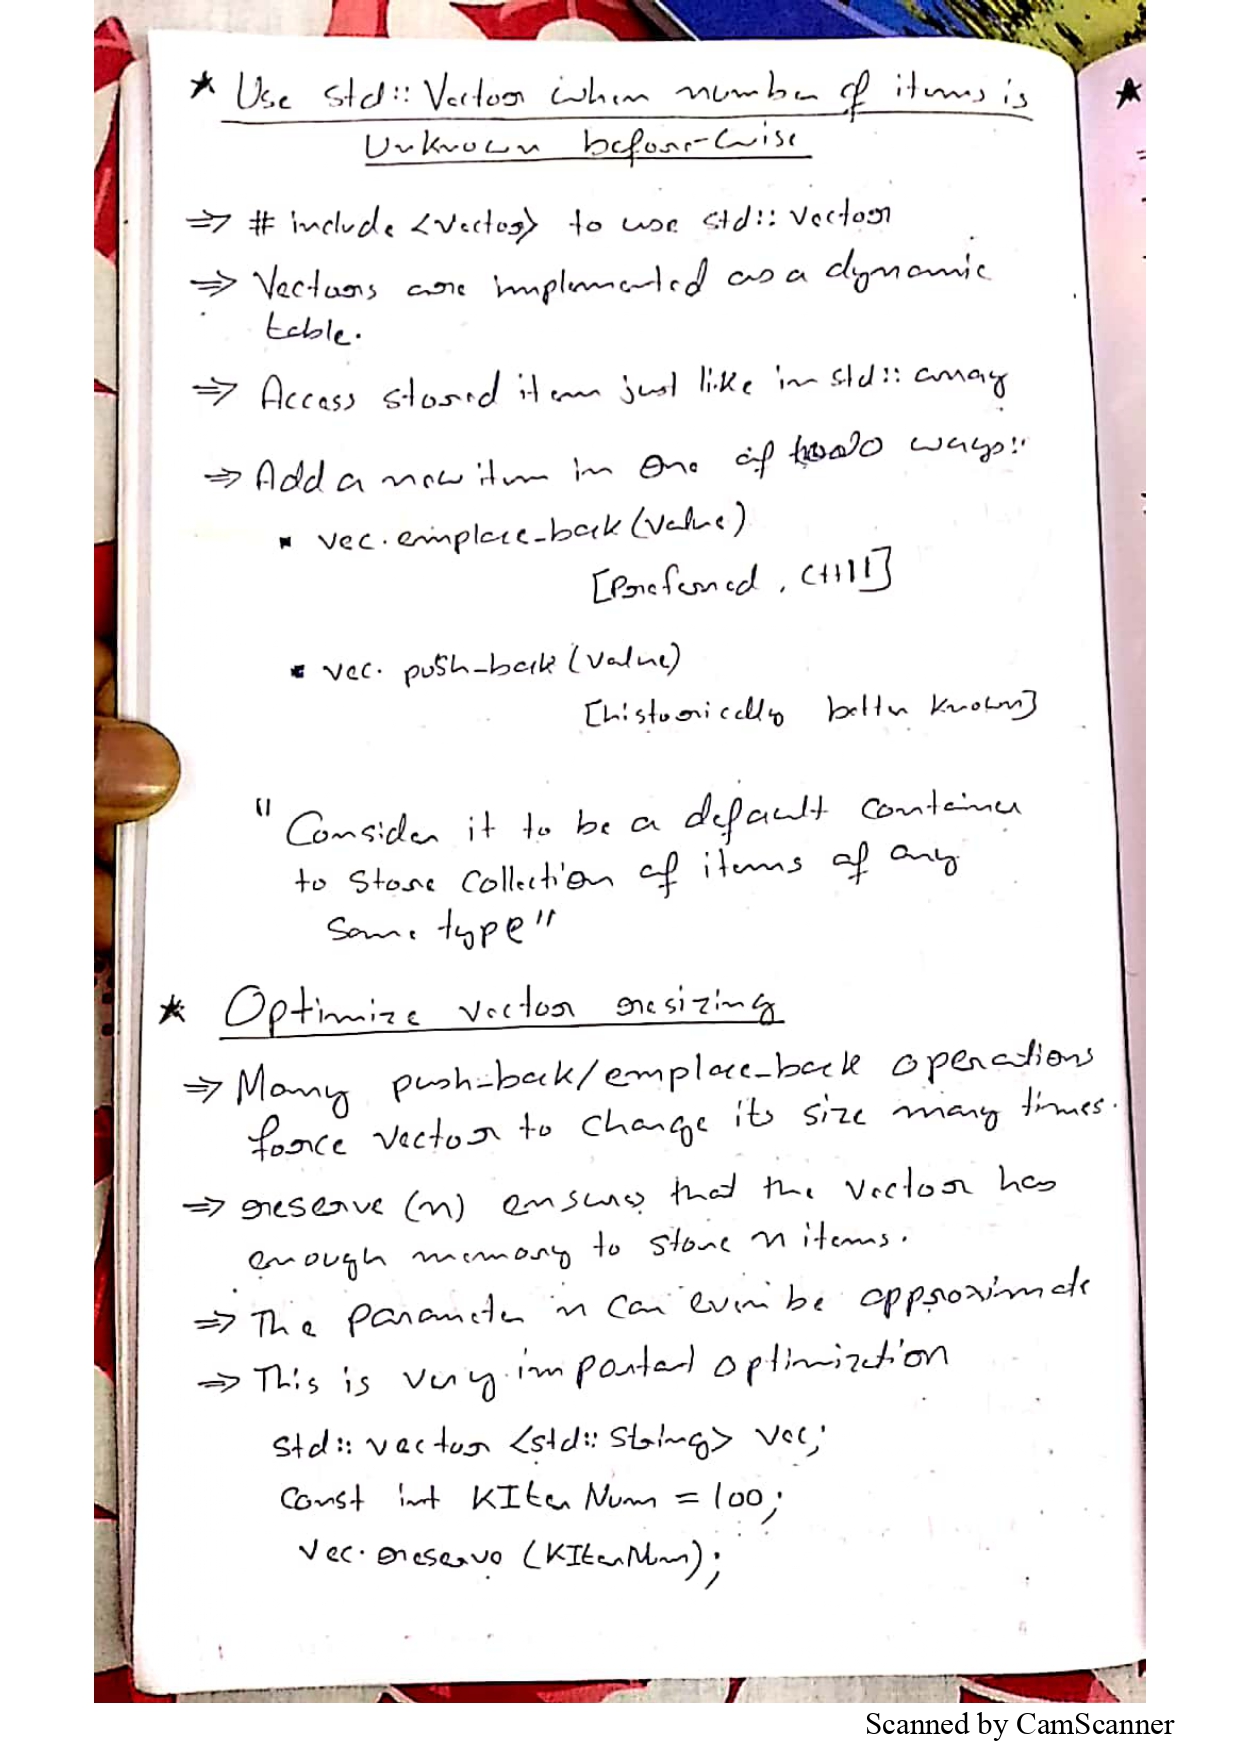 ★ Use std::vector when number of items is
unknown before-wise
⇒ #include <vector> to use std::vector
⇒ Vectors are implemented as a dynamic
table.
⇒ Access stored item just like in std::array
⇒ Add a new item in one of two ways:
▪ vec.emplace_back(value)
[Preferred, C++11]
▪ vec.push_back(value)
[historically better known]
"Consider it to be a default container
to store collection of items of any
same type"
★ Optimize vector resizing
⇒ Many push_back/emplace_back operations
force vector to change its size many times.
⇒ reserve(n) ensures that the vector has
enough memory to store n items.
⇒ The parameter n can even be approximate
⇒ This is very important optimization
std::vector<std::string> vec;
const int KIterNum = 100;
vec.reserve(KIterNum);
Scanned by CamScanner